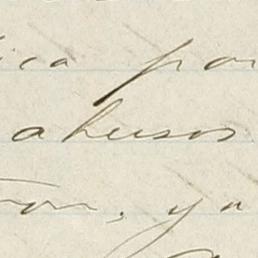 ica por
abusos
ron, ya